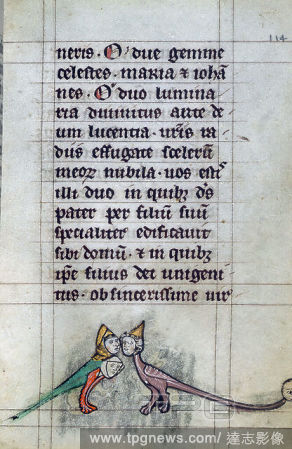 114
neris. O due gemme
celestes. maria ⁊ iohā
nes. O duo lumina
ria diuinitus ante de
um lucentia. ur̄is ra
diis effugate scelerū
meoꝝ nubila. uos est̄
illi duo in quibꝫ d̄s
pater per filiū suū
specialiter edificauit
sibi domū. ⁊ in quibꝫ
ip̄e filius dei unigeni
tus. ob sincerissime uir
www.tpgnews.com / 達志影像